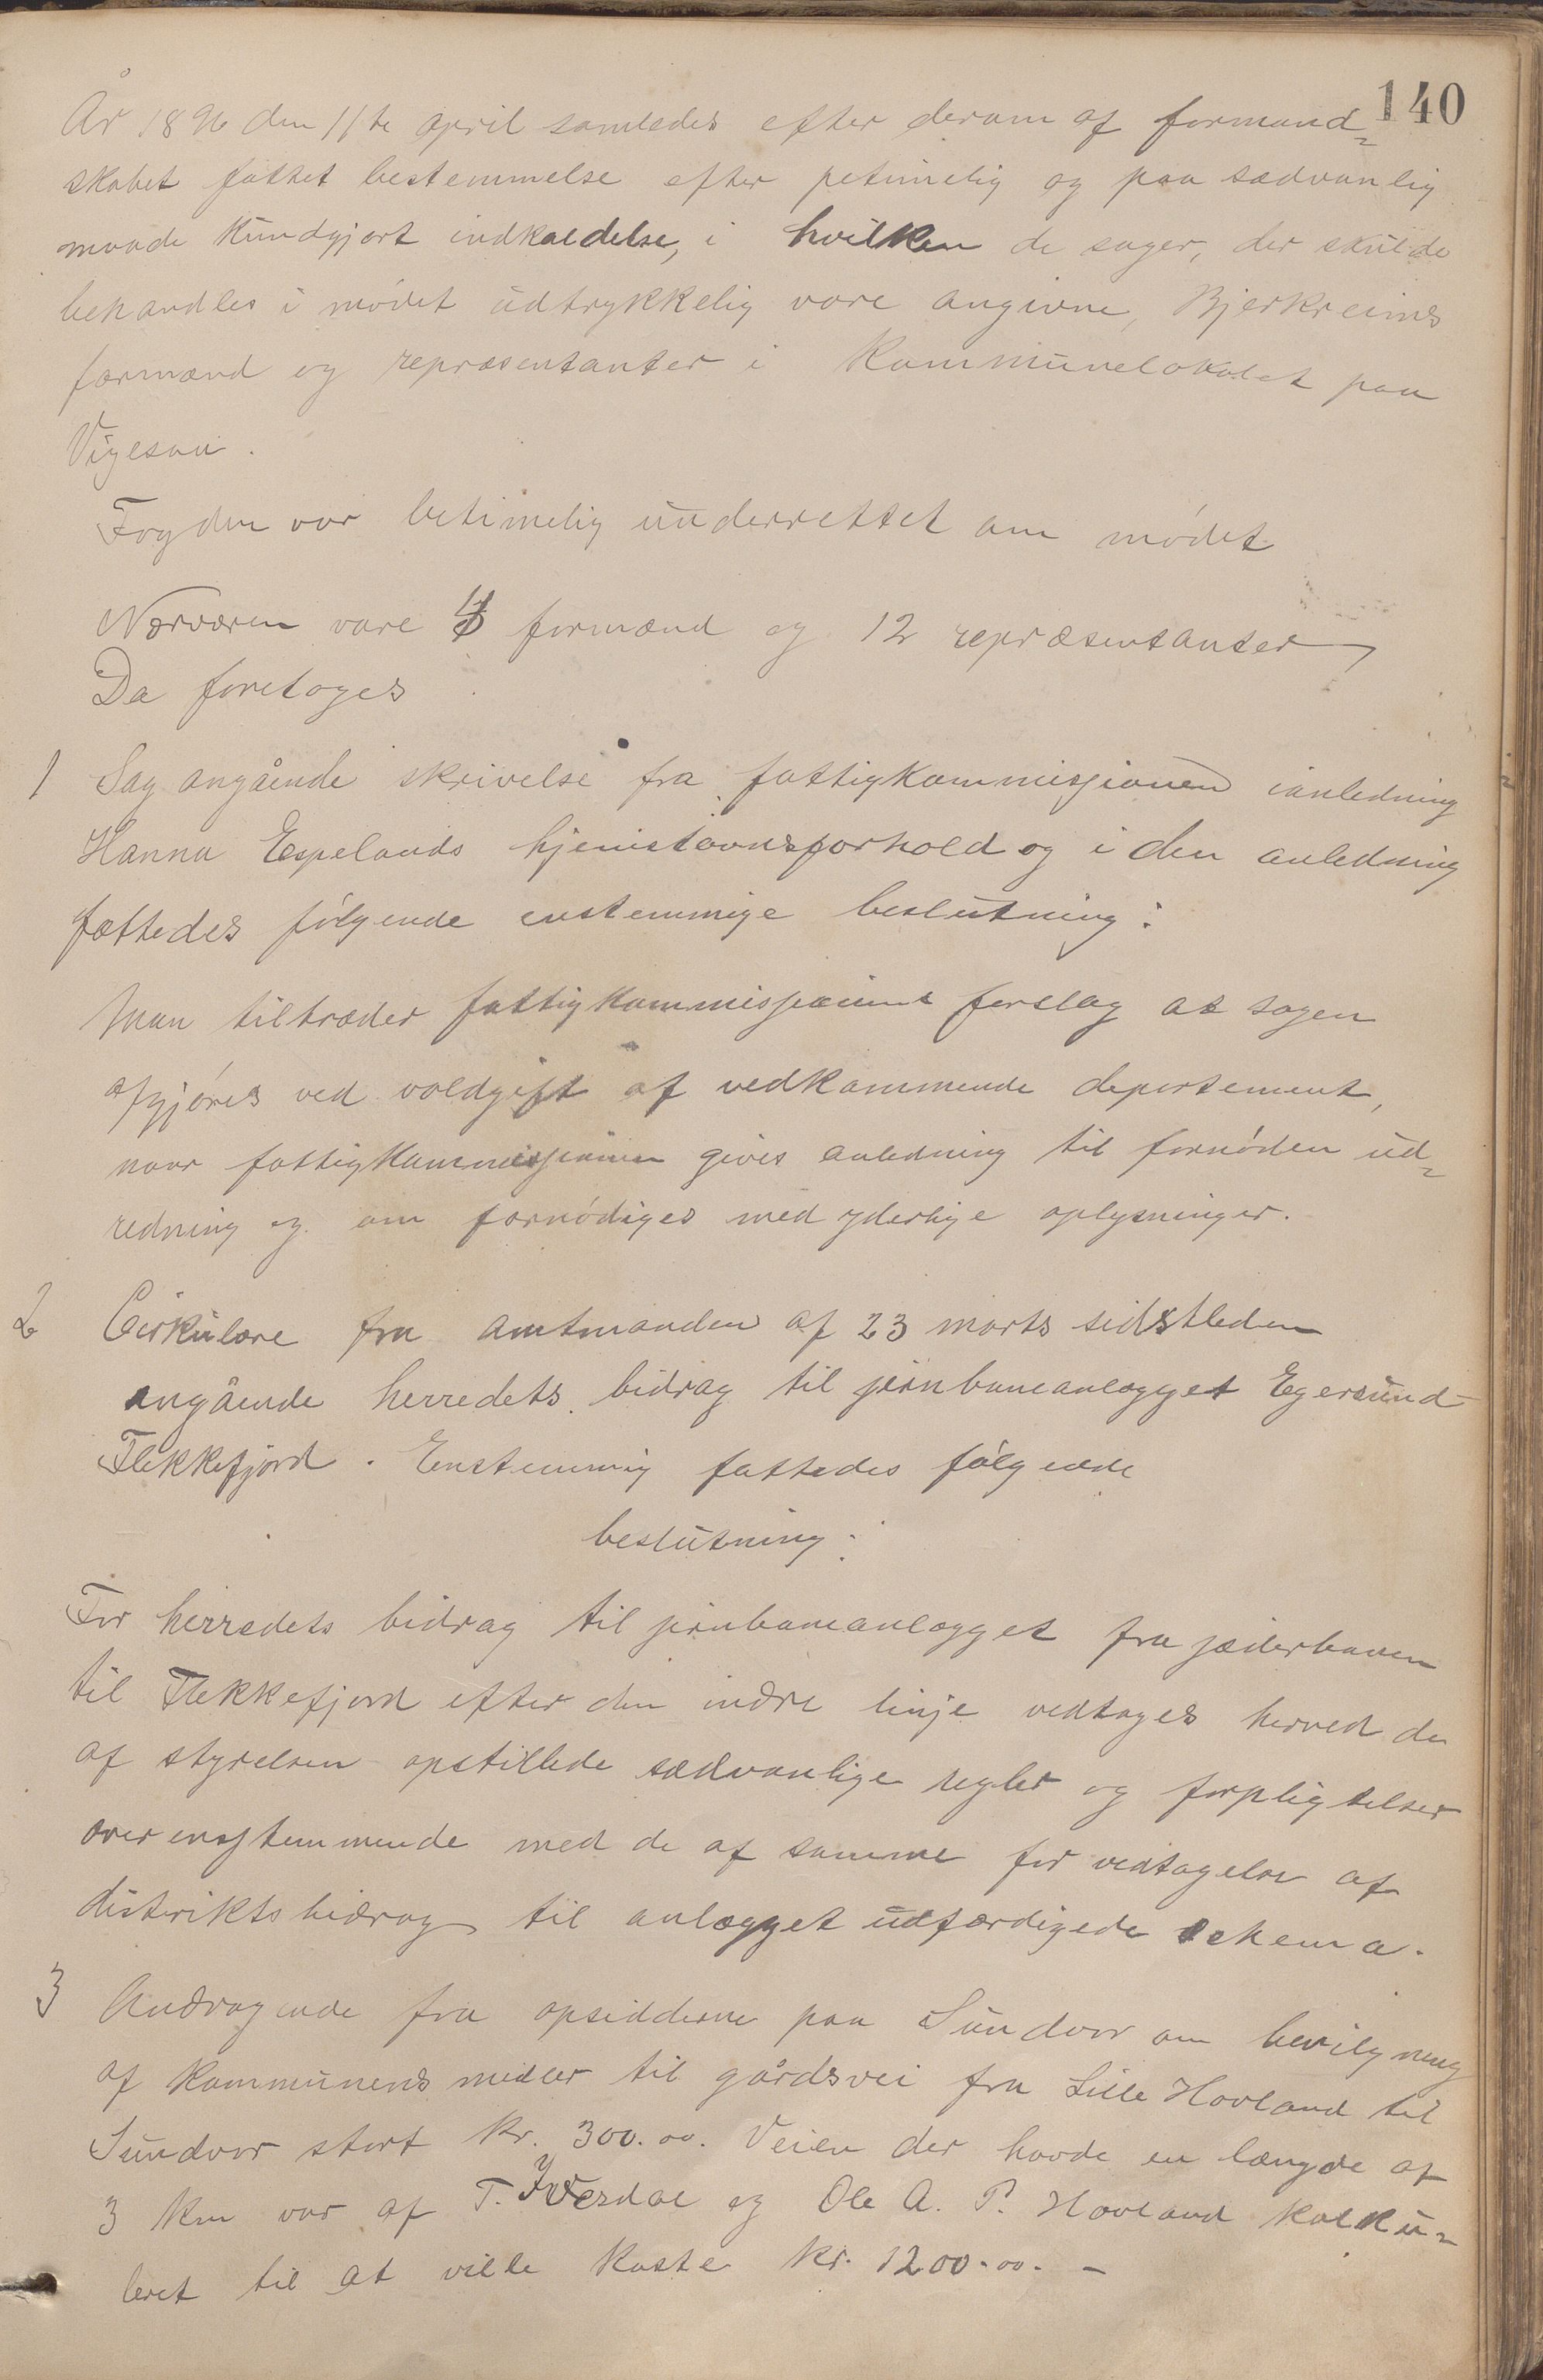 140
År 1896 den 11te april samledes efter derom af formand-
skabet fattet bestemmelse efter petimelig og paa sædvanlig
maade kundgjort indkaldelse, i hvilken de sager, der skulde
behandles i mødet udtrykkelig vare angivne, Bjerkreims
formænd og repræsentanter i Kommunelokalet paa
Vigesaa.
Fogden var betimelig underrettet om mødet
Nærværen vare 4 formænd og 12 repræsentanter,
Da foretoges
1 Sag angående skrivelse fra fattigkommisjonen ianledning
Hanna Espelands hjemstavnsforhold og i den anledning
fattedes følgende enstemmige beslutning:
Man tiltræder fattigkommisjonens forslag at sagen
afgjøres ved voldgift af vedkommende departement,
naar fattigkommisjonen gives anledning til fornøden ud-
redning og om fornødiges med yderlige oplysninger.
2 Cirkulære fra amtmanden af 23 marts sidstleden
angående herredets bidrag til jernbaneanlægget Egersund-
Flekkefjord. Enstemmig fattedes følgende
beslutning:
For herredets bidrag til jernbaneanlægget fra jæderbanen
til Flekkefjord efter den indre linje vedtages herved de
af styrelsen opstillede sædvanlige regler og forpligtelser
overensstemmende med de af samme for vedtagelse af
distriktsbidrag til anlægget udfærdigede schema.
3 Andragende fra opsidderne paa Sundvor om bevilgning
af kommunens midler til gårdsvei fra Lille Hovland til
Sundvor stort kr. 300.00. Veien der havde en længde af
3 km var af T. Iversdal og Ole A. P. Hovland kalku-
leret til at ville koste kr. 1200.00. -